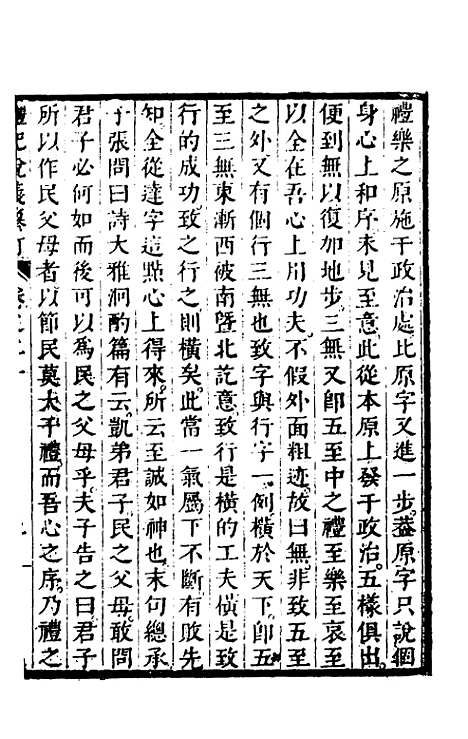 禮樂之原施于政治處比原字又進一步蓋原字只說個
身心上和序未見至意此從本原上發于政治五樣俱出
便到無以復加地步三無又卽五至中之禮至樂至哀至
以全在吾心上用功夫不假外面粗迹故曰無非致五至
之外又有個行三無也致字與行字一例橫於天下卽五
至三無東漸西被南曁北訖意致行是橫的工夫橫是致
行的成功致之行之則橫矣此當一氣屬下不斷有敗先
知全從達字這點心上得來所云至誠如神也末句總承
子張問曰詩大雅泂酌篇有云凱弟君子民之父母敢問
君子必何如而後可以爲民之父母乎夫子告之曰君子
所以作民父母者以節民莫大乎禮而吾心之序乃禮之
禮記說義纂訂